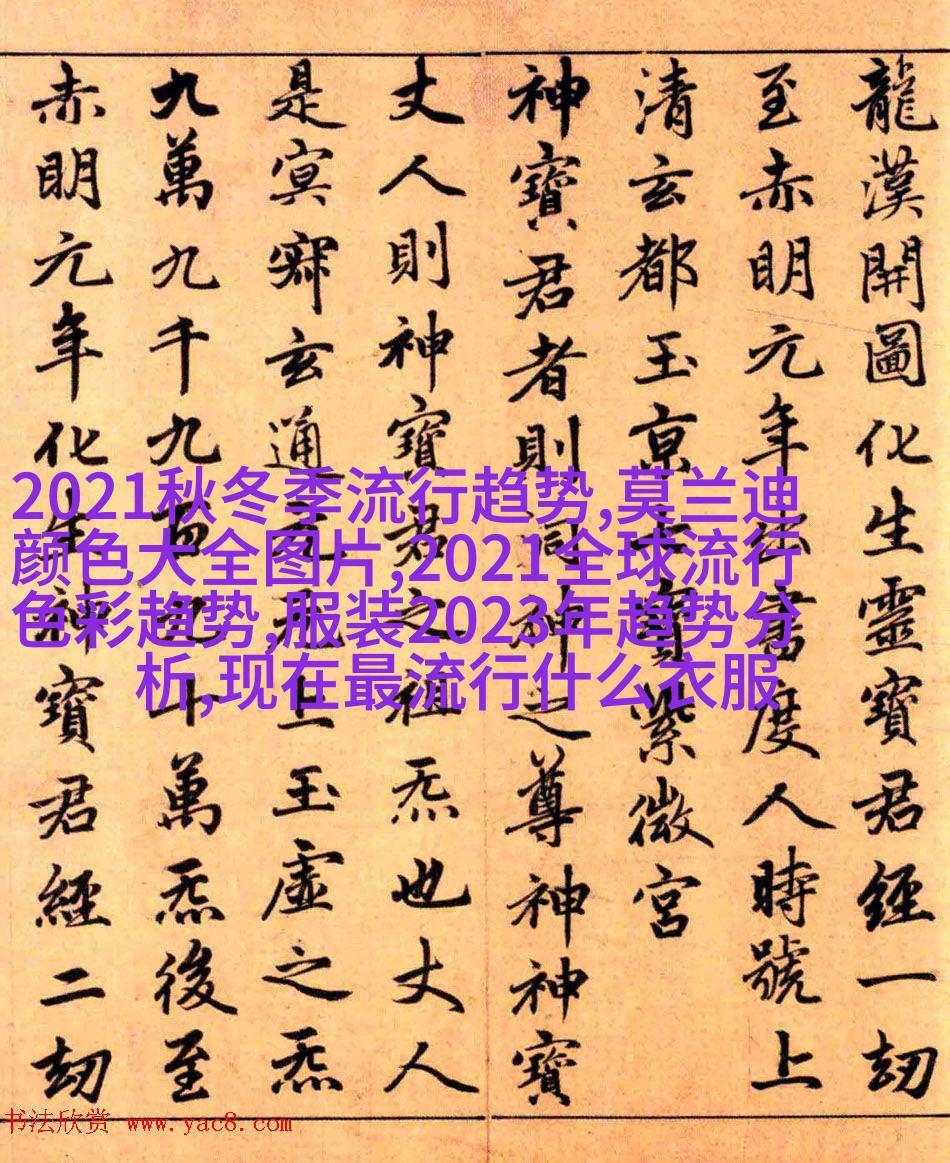 龍漢開圖化生靈寶君經一劫
至赤明元年書度人時號上
清玄都玉京七寶紫微宮
神寶君者則洞神之尊神神寶
丈人則神寶君之祖炁也丈人
是冥寂玄通元無上玉虛之炁
九萬九千九百九十萬炁後至
赤明元年化生神寶君經二劫
2021秋冬季流行趋势,莫兰迪
颜色大全图片,2021全球流行
色彩趋势,服装2023年趋势分
析,现在最流行什么衣服
书法欣赏 www.yac8.com